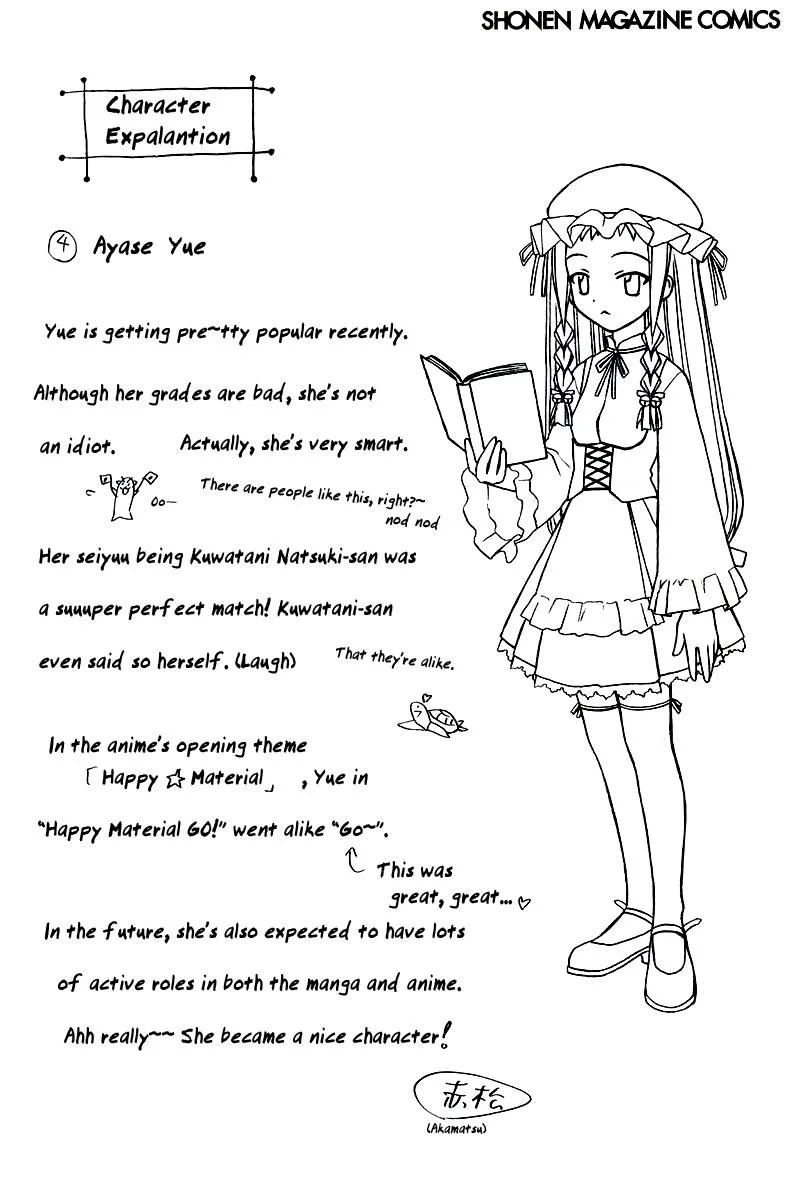 SHONEN MAGAZINE COMICS
Character
Expalantion
④ Ayase Yue
Yue is getting pre~tty popular recently.
Although her grades are bad, she's not
an idiot. Actually, she's very smart.
There are people like this, right?~
nod nod
Her seiyuu being Kuwatani Natsuki-san was
a suuuper perfect match! Kuwatani-san
even said so herself. (Laugh) That they're alike.
In the anime's opening theme
「Happy ☆ Material」, Yue in
"Happy Material GO!" went alike "Go~".
This was
great, great...♡
In the future, she's also expected to have lots
of active roles in both the manga and anime.
Ahh really~~ She became a nice character!
赤松
(Akamatsu)